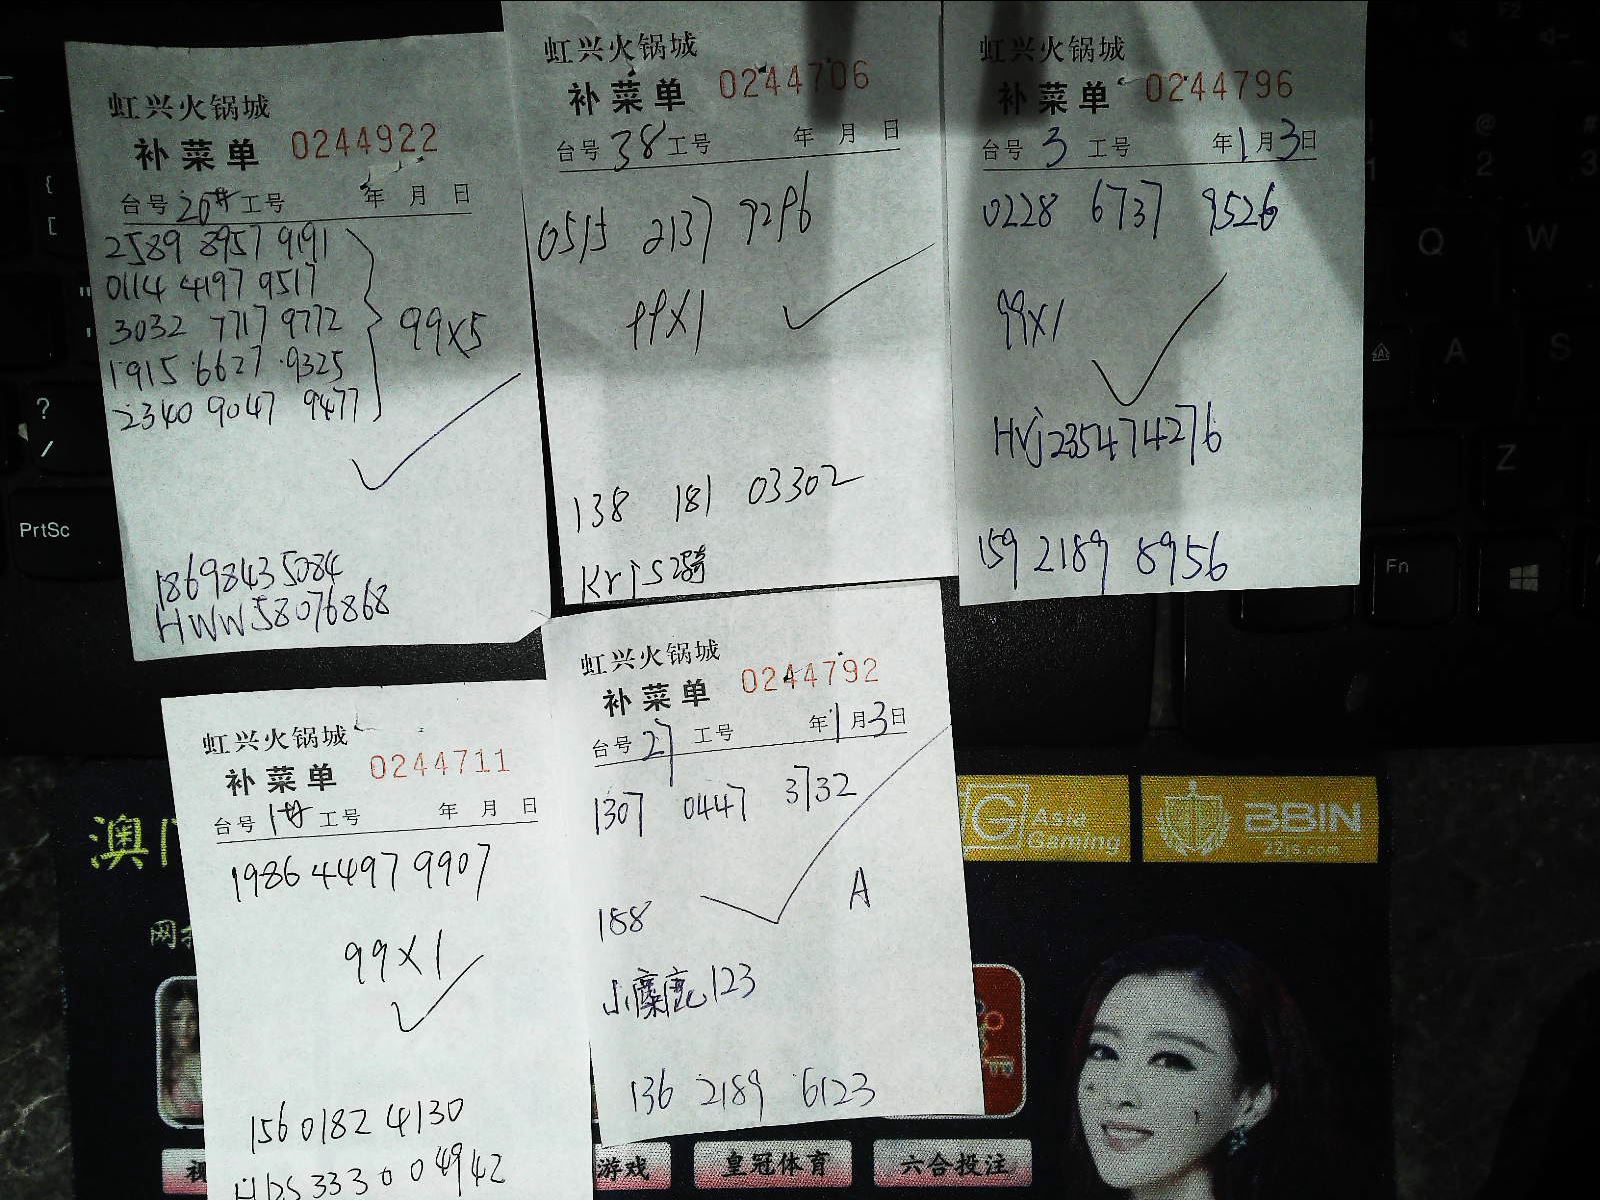 虹兴火锅城
补菜单 0244922
台号 20# 工号 年 月 日
2589 8957 9191
0114 4197 9517
3032 7717 9772
1915 6627 9325
2340 9047 9477
99X5
18698435084
HWW58076868
虹兴火锅城
补菜单 0244706
台号 38 工号 年 月 日
0515 2137 9296
99X1
138 181 03302
虹兴火锅城
补菜单 0244796
台号 3 工号 年1月3日
0228 6737 9526
99X1
HVj235474276
159 2189 8956
虹兴火锅城
补菜单 0244711
台号 1# 工号 年 月 日
1986 4497 9907
99X1
156 0182 4130
虹兴火锅城
补菜单 0244792
台号 27 工号 年1月3日
1307 0447 3732
188
A
小麋鹿123
136 2189 6123
PrtSc
Fn
Q
W
A
S
Z
澳门
Asia Gaming
BBIN
22js.com
游戏
皇冠体育
六合投注